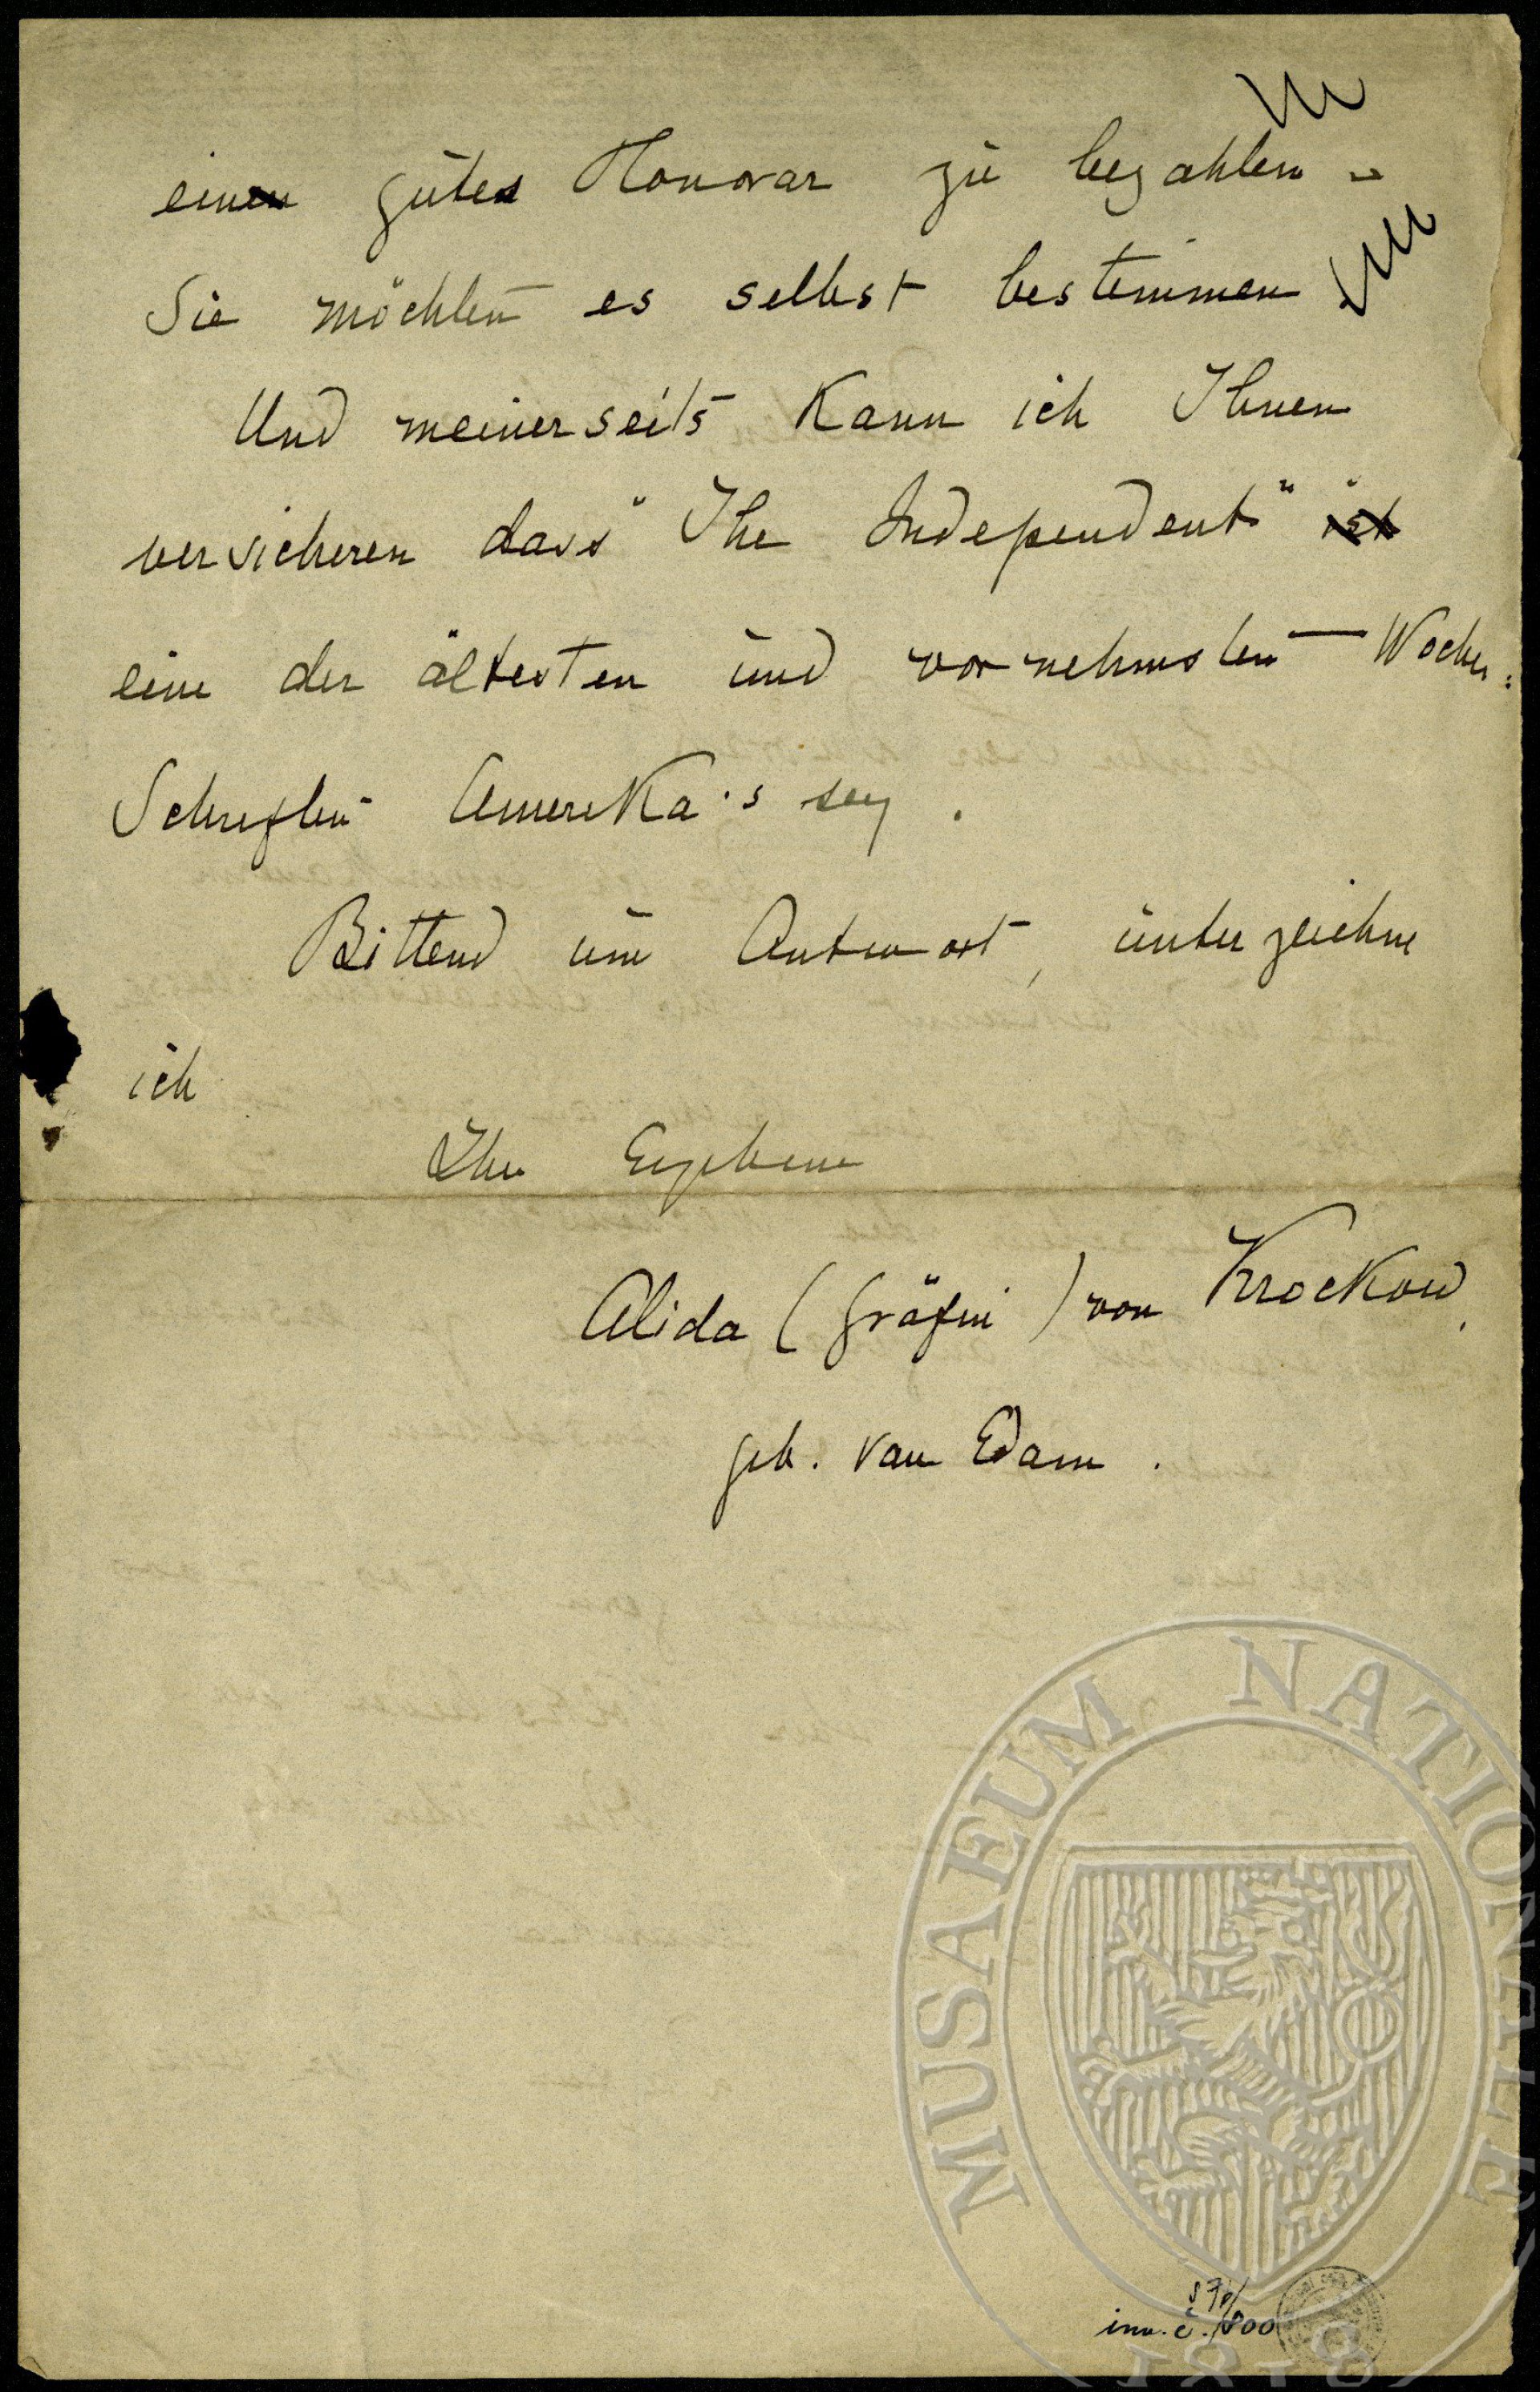 ein gutes Honorar zu bezahlen –
Sie möchten es selbst bestimmen
Und meinerseits kann ich Ihnen
versicheren dass "The Independent"
eine der ältesten und vornehmsten Wochen=
Schriften Amerika's sey.
Bittend um Antwort, unterzeichne
ich
Ihre Ergebene
Alida (Gräfin) von Krockow,
geb. van Edam.
MUSAEUM NATIONALE
1818
inv. č. 800